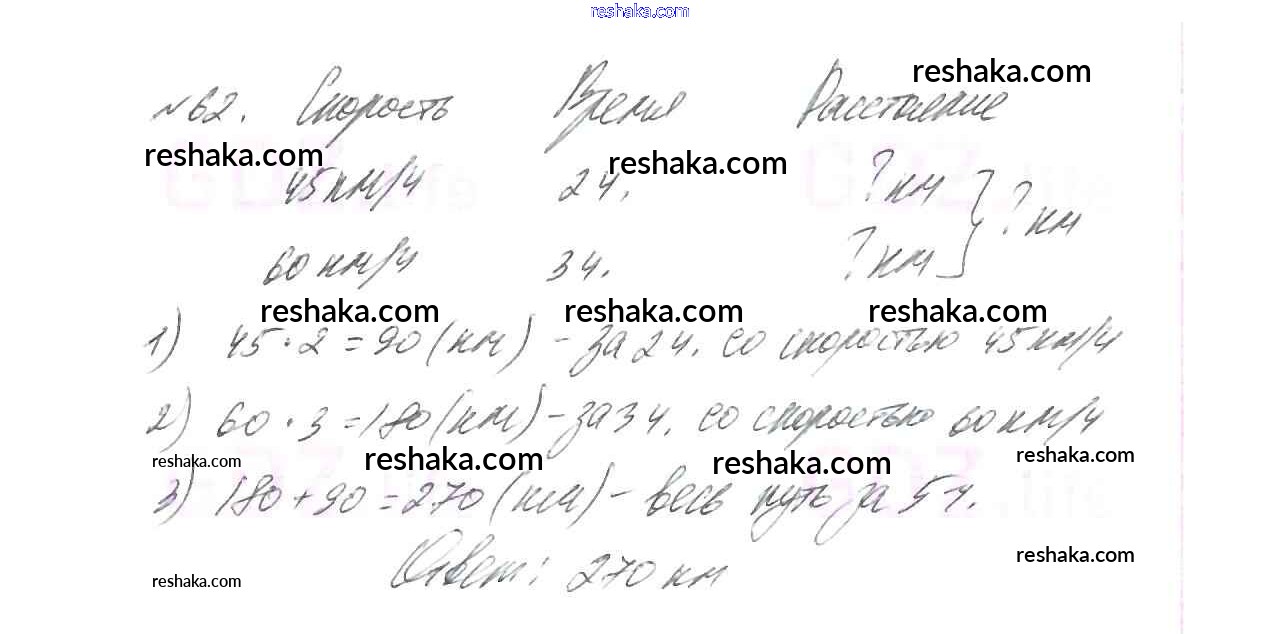 reshaka.com
reshaka.com
№62. Скорость Время Расстояние
reshaka.com reshaka.com
45км/ч 2ч. ?км
?км
60км/ч 3ч. ?км
reshaka.com reshaka.com reshaka.com
1) 45·2=90(км) - за 2ч. со скоростью 45км/ч
2) 60·3=180(км) - за 3ч. со скоростью 60км/ч
reshaka.com reshaka.com reshaka.com reshaka.com
3) 180+90=270(км) - весь путь за 5ч.
reshaka.com
Ответ: 270 км
reshaka.com